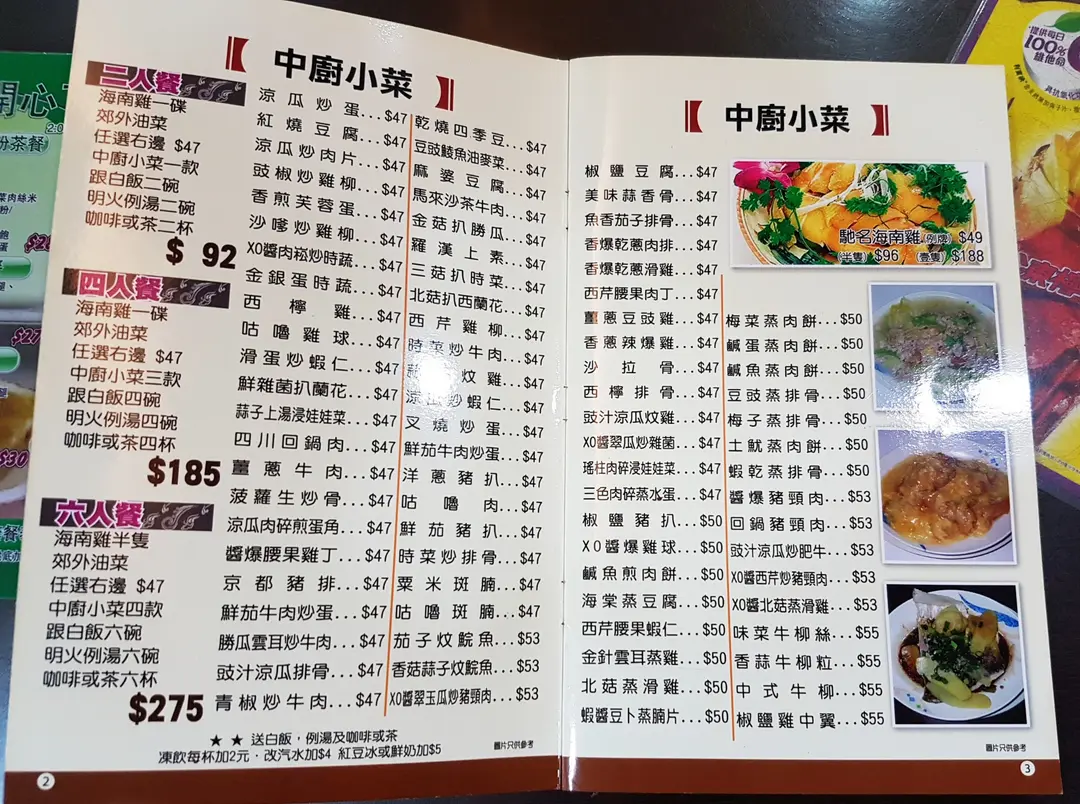 【中廚小菜】
二人餐
海南雞一碟
郊外油菜
任選右邊 $47
中廚小菜一款
跟白飯二碗
明火例湯二碗
咖啡或茶二杯
$ 92
四人餐
海南雞一碟
郊外油菜
任選右邊 $47
中廚小菜三款
跟白飯四碗
明火例湯四碗
咖啡或茶四杯
$185
六人餐
海南雞半隻
郊外油菜
任選右邊 $47
中廚小菜四款
跟白飯六碗
明火例湯六碗
咖啡或茶六杯
$275
涼瓜炒蛋...$47
紅燒豆腐...$47
涼瓜炒肉片...$47
豉椒炒雞柳...$47
香煎芙蓉蛋...$47
沙嗲炒雞柳...$47
XO醬肉崧炒時蔬...$47
金銀蛋時蔬...$47
西檸雞...$47
咕嚕雞球...$47
滑蛋炒蝦仁...$47
鮮雜菌扒蘭花...$47
蒜子上湯浸娃娃菜...$47
四川回鍋肉...$47
薑蔥牛肉...$47
菠蘿生炒骨...$47
涼瓜肉碎煎蛋角...$47
醬爆腰果雞丁...$47
京都豬排...$47
鮮茄牛肉炒蛋...$47
勝瓜雲耳炒牛肉...$47
豉汁涼瓜排骨...$47
青椒炒牛肉...$47
乾燒四季豆...$47
豆豉鯪魚油麥菜...$47
麻婆豆腐...$47
馬來沙茶牛肉...$47
金菇扒勝瓜...$47
羅漢上素...$47
三菇扒時菜...$47
北菇扒西蘭花...$47
西芹雞柳...$47
時菜炒牛肉...$47
炆雞...$47
炒蝦仁...$47
叉燒炒蛋...$47
鮮茄牛肉炒蛋...$47
洋蔥豬扒...$47
咕嚕肉...$47
鮮茄豬扒...$47
時菜炒排骨...$47
粟米斑腩...$47
咕嚕斑腩...$47
茄子炆鯇魚...$53
香菇蒜子炆鯇魚...$53
XO醬翠玉瓜炒豬頸肉...$53
★ ★ 送白飯，例湯及咖啡或茶
凍飲每杯加2元．改汽水加$4 紅豆冰或鮮奶加$5
圖片只供參考
2
【中廚小菜】
椒鹽豆腐...$47
美味蒜香骨...$47
魚香茄子排骨...$47
香爆乾蔥肉排...$47
香爆乾蔥滑雞...$47
西芹腰果肉丁...$47
薑蔥豆豉雞...$47
香蔥辣爆雞...$47
沙拉骨...$47
西檸排骨...$47
豉汁涼瓜炆雞...$47
XO醬翠瓜炒雜菌...$47
瑤柱肉碎浸娃娃菜...$47
三色肉碎蒸水蛋...$47
椒鹽豬扒...$50
XO醬爆雞球...$50
鹹魚煎肉餅...$50
海棠蒸豆腐...$50
西芹腰果蝦仁...$50
金針雲耳蒸雞...$50
北菇蒸滑雞...$50
蝦醬豆卜蒸腩片...$50
馳名海南雞(例牌) $49
(半隻) $96 (壹隻) $188
梅菜蒸肉餅...$50
鹹蛋蒸肉餅...$50
鹹魚蒸肉餅...$50
豆豉蒸排骨...$50
梅子蒸排骨...$50
土魷蒸肉餅...$50
蝦乾蒸排骨...$50
醬爆豬頸肉...$53
回鍋豬頸肉...$53
豉汁涼瓜炒肥牛...$53
XO醬西芹炒豬頸肉...$53
XO醬北菇蒸滑雞...$53
味菜牛柳絲...$55
香蒜牛柳粒...$55
中式牛柳...$55
椒鹽雞中翼...$55
圖片只供參考
3
開心
粉茶餐
$30
提供每日
100%
維他命